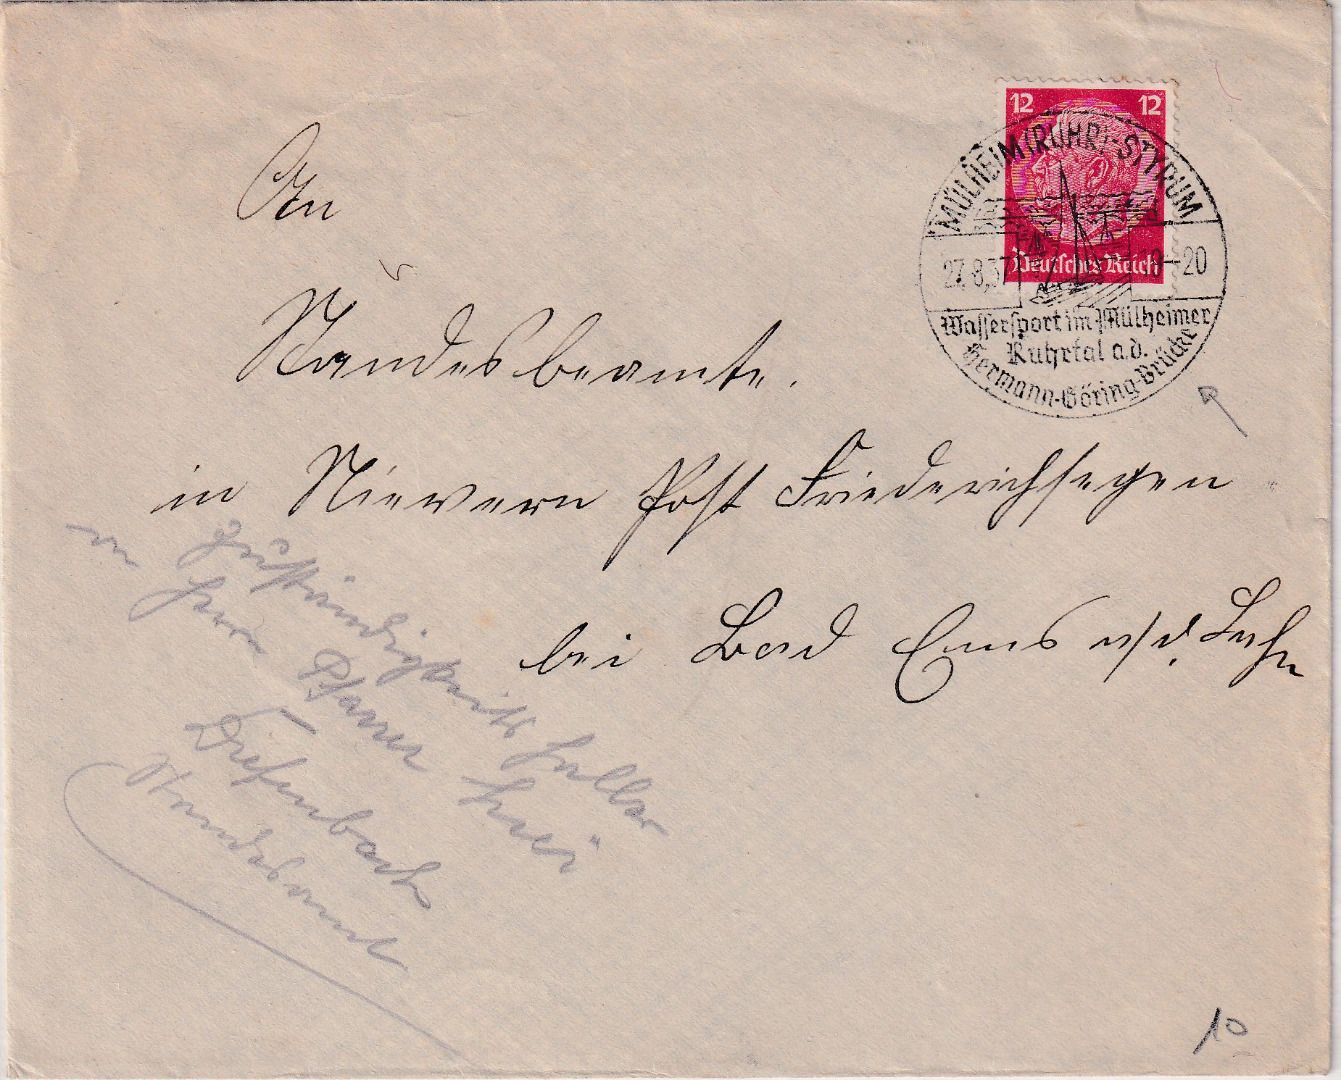 12 12
Deutsches Reich
MÜLHEIM (RUHR)-STYRUM
27.8.37 -20
Wassersport im Mülheimer
Ruhrtal a.d.
Hermann-Göring-Brücke
An
Standesbeamte.
in Nievern Post Friederichsegen
bei Bad Ems a/d. Lahn
Zuständigkeits halber
an Herrn Pfarrer
Standesamt
10